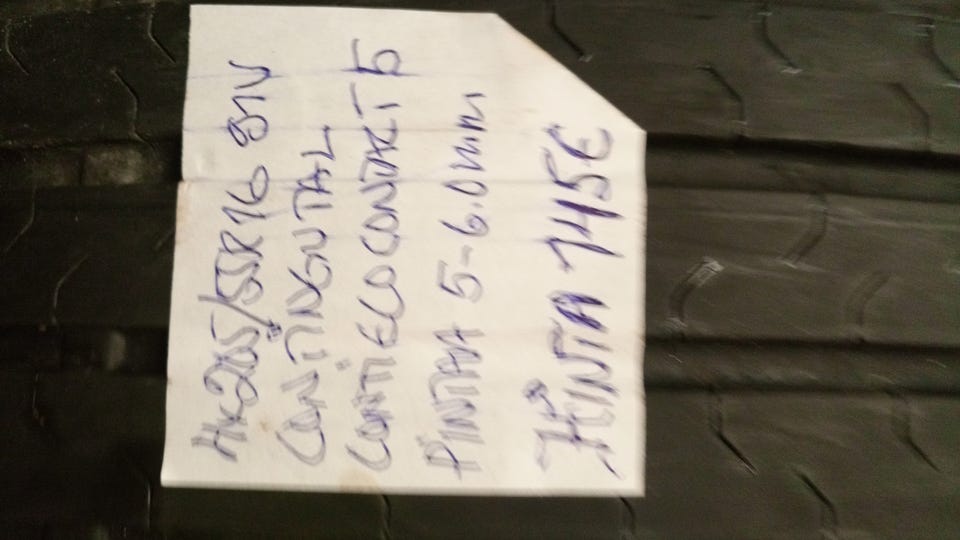 4x205/55R16 91V
CONTINENTAL
CONTIECOCONTACT 5
PINTAA 5-6.0mm
HINTA 145€